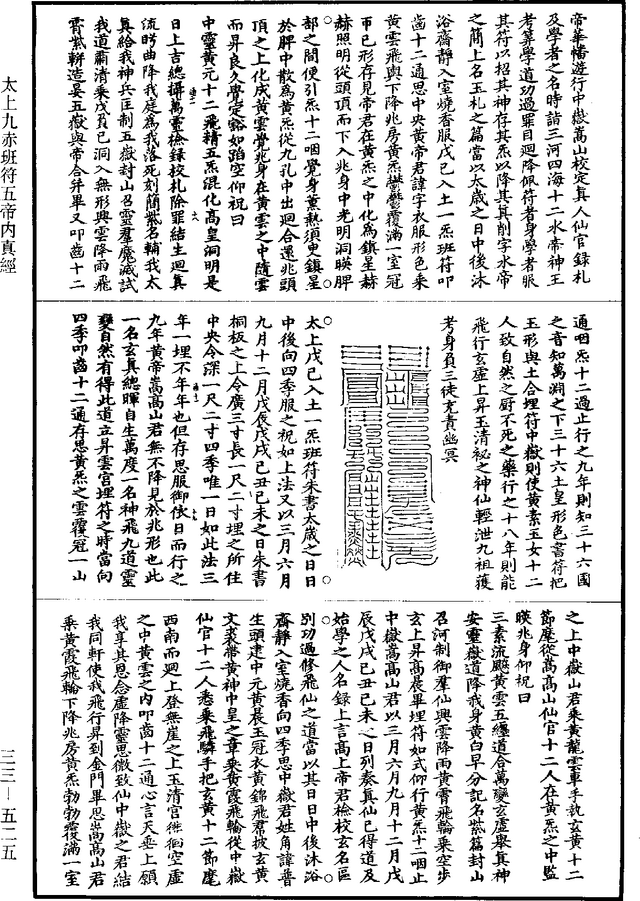 帝華幡遊行中嶽嵩山校定真人仙官錄札
及學者之名時詣三河四海十二水帝神王
考筭學道功過罪目迴降佩符者身學者服
其符以招其神存其炁以降其真削字水帝
之簡上名玉札之篇當以太歲之日中後沐
浴齋靜入室燒香服戊己入土一炁班符叩
齒十二通思中央黄帝君諱字衣服形色乘
黄雲飛輿下降兆房黄炁鬱鬱覆滿一室冠
帀已形存見帝君在黄炁之中化為鎮星赫
赫照明從頭頂而下入兆身中光明洞暎脾
部之間便引炁十二咽覺身薰熱須臾鎮星
於脾中散為黄炁從九孔中出迴合遶兆頭
頂之上化成黄雲覺兆身在黄雲之中隨雲
而昇良久覺定豁如蹈空仰祝曰
中靈黄元十二飛精五炁混化高皇洞明是
日上吉總攝萬靈檢録校札除罪結生迴真
流眄曲降我庭為我落死刻簡紫名輔我太
真給我神兵匡制五嶽封山召靈羣魔滅試
我道肅清乗戊負已洞入無形興雲降雨飛
霄紫軿造晏五嶽與帝合并畢又叩齒十二
通咽炁十二過止行之九年則知三十六國
之音知萬淵之下三十六土皇形色嘗符把
玉形與土合埋符中嶽則使黄素玉女十二
人致自然之厨不死之藥行之十八年則能
飛行玄虚上昇玉清秘之神仙輕泄九祖獲
考身負三徒充責幽冥
太上戊己入土一炁班符朱書太歲之日日
中後向四季服之祝如上法又以三月六月
九月十二月戊辰戊戌己丑己未之日朱書
桐板之上令廣三寸長一尺二寸埋之所住
中央令深一尺二寸四季唯一日如此法三
年一埋不年年也但存思服御依日而行之
九年黄帝嵩高山君無不降見於兆形也此
一名玄真總暉自生萬度一名神飛九道靈
變自然有得此道立昇雲宫埋符之時當向
四季叩齒十二通存思黄炁之雲覆冠一山
之上中嶽山君乗黄龍雲車手執玄黄十二
節麾從嵩高山仙官十二人在黄炁之中監
暎兆身仰祝曰
三素流飈黄雲五纏道合萬變玄虚舉真神
安靈嶽道降我身黄白早分記名紫篇封山
召河制御羣仙興雲降雨黄霄飛輪乗空步
玄上昇高晨畢埋符如式仰行黄炁十二咽止
中嶽嵩高山君以三月六月九月十二月戊
辰戊戌己丑己未之日列奏真仙已得道及
始學之人名録上言高上帝君檢校玄名區
别功過修飛仙之道當以其日日中後沐浴
齋靜入室燒香向四季思中嶽君姓角諱普
生頭建中元黄晨玉冠衣黄錦飛帬披玄黄
文裘帶黄神中皇之章乗黄霞飛輪從中嶽
仙官十二人悉乗飛驎手把玄黄十二節麾
西南而迴上登無崖之上玉清宫徘徊空虚
之中黄雲之内叩齒十二通心言天無上願
我享其恩念虚降靈思微致仙中嶽之君結
我同軒使我飛行昇到金門畢思嵩高山君
乗黄霞飛輪下降兆房黄炁勃勃覆滿一室
太上九赤班符五帝内真經
三三—五二五